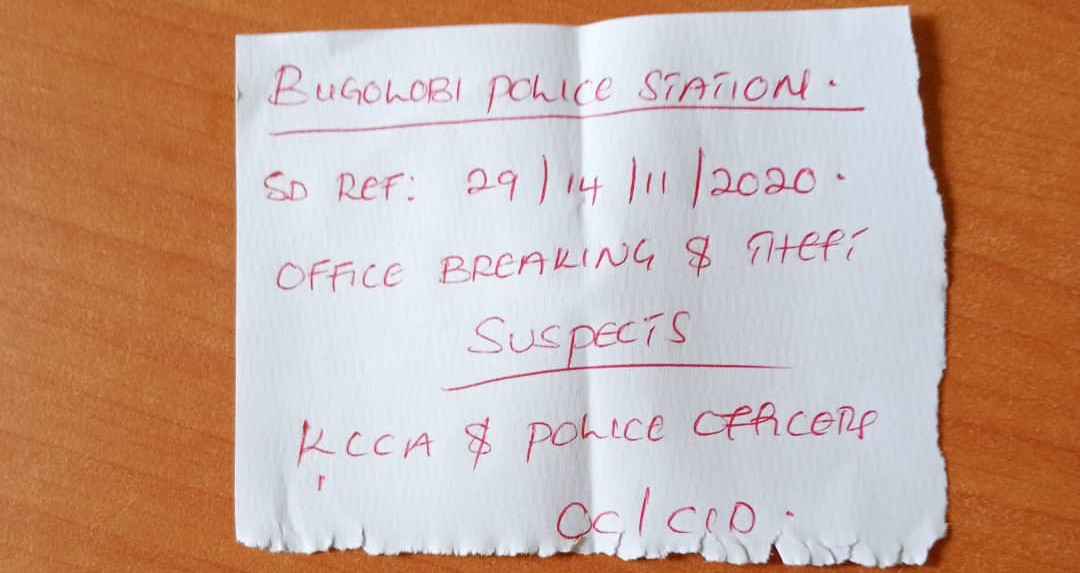 BUGOLOBI POLICE STATION.
SD REF: 29/14/11/2020.
OFFICE BREAKING & THEFT
SUSPECTS
KCCA & POLICE OFFICERS
OC/CID.